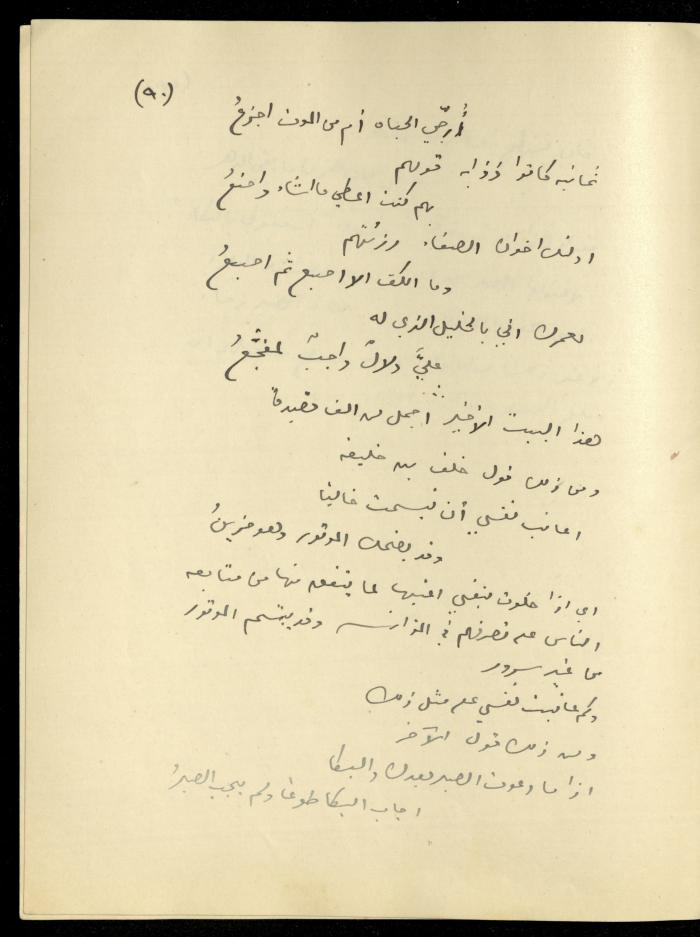 (٩٠)
أُرجّي الحياه أم من الموت اجزعُ
ثمانيه كانوا ذؤابه قومهم
بهم كنت اعطي ما اشاء وامنعُ
اولئك اخوان الصفاء رزئتهم
وما الكف الا اصبع ثم اصبعُ
لعمرك اني بالخليل الذي له
عليَّ دلالٌ واجبٌ لمفجَّعُ
هذا البيت الأخير أجمل من الف قصيدة
ومن ذلك قول خلف بن خليفه
اعاتب نفسي أن تبسمت خاليا
وقد يضحك الموتور وهو حزينُ
اي اذا خلوت بنفسي اعتبها لما يتفق منها من متابعه
الناس على تصرفهم في المؤانسه وقد يبتسم الموتور
من غير سرور
وكم عاتبت نفسي على مثل ذلك
ومن ذلك قول الآخر
اذا ما دعوت الصبر بعدك والبكا
اجاب البكا طوعا ولم يجب الصبرُ